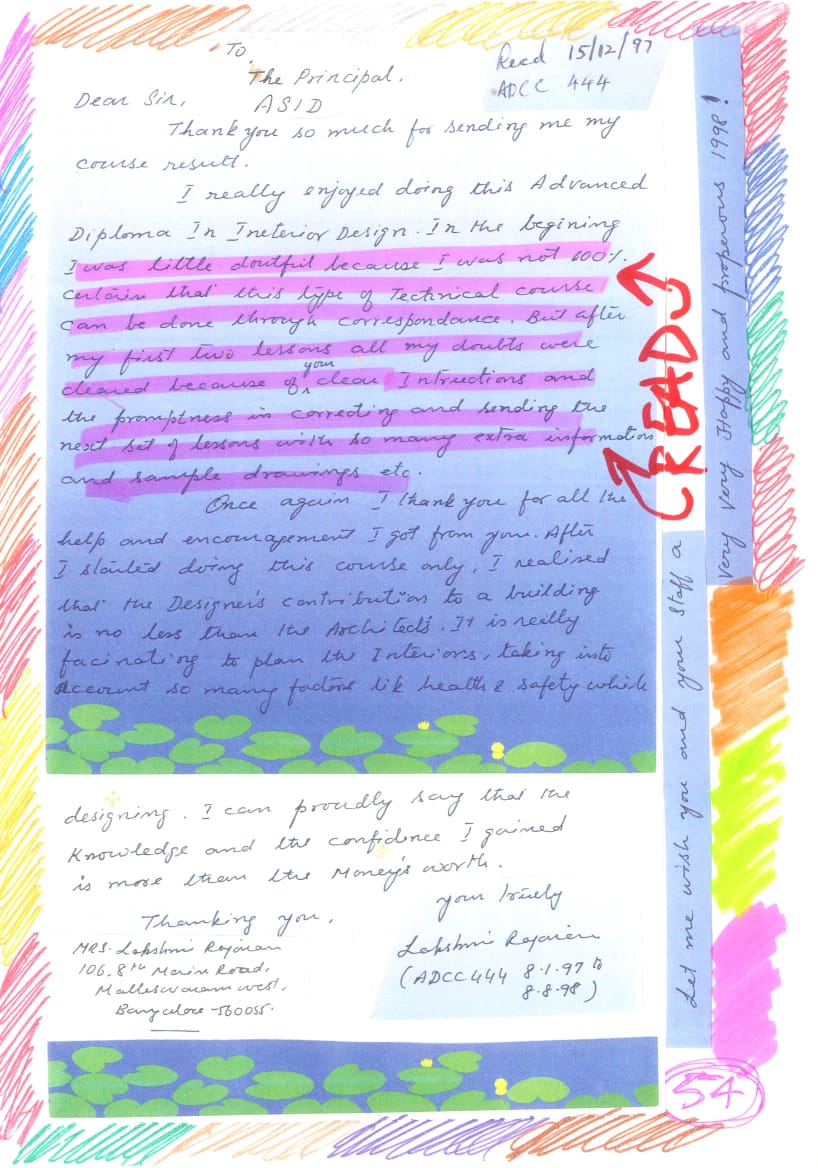 To
The Principal.
ASID
Recd 15/12/97
ADCC 444
Dear Sir,
Thank you so much for sending me my
course result.
I really enjoyed doing this Advanced
Diploma In Ineterior Design. In the begining
I was little doutful because I was not 100%.
certain that this type of Technical course
can be done through correspondance. But after
my first two lessons all my doubts were
cleared because of your clear Intructions and
the promptness in correcting and sending the
next set of lessons with so many extra information
and sample drawings etc.
Once again I thank you for all the
help and encouragement I got from you. After
I started doing this course only, I realised
that the Designer's contribution to a building
is no less than the Architect's. It is really
facinating to plan the Interiors, taking into
account so many factors lik health & safety while
designing. I can proudly say that the
Knowledge and the confidence I gained
is more than the Money's worth.
Thanking you,
your truely
Lakshmi Rajaram
(ADCC444 8.1.97 to
8.8.98)
MRS. Lakshmi Rajaram
106, 8th Main Road,
Malleswaram west,
Bangalore-560055.
Let me wish you and your staff a
Very Very Happy and properous 1998!
READ
54